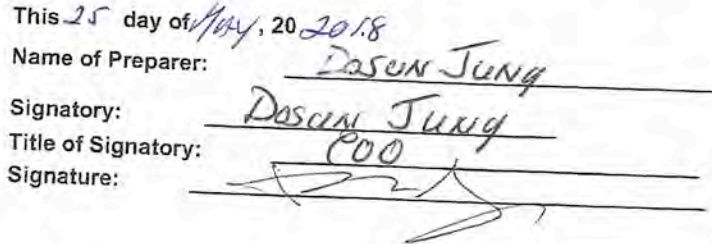 This 25 day of May, 20 2018
Name of Preparer: Dosun Jung
Signatory: Dosun Jung
Title of Signatory: COO
Signature: